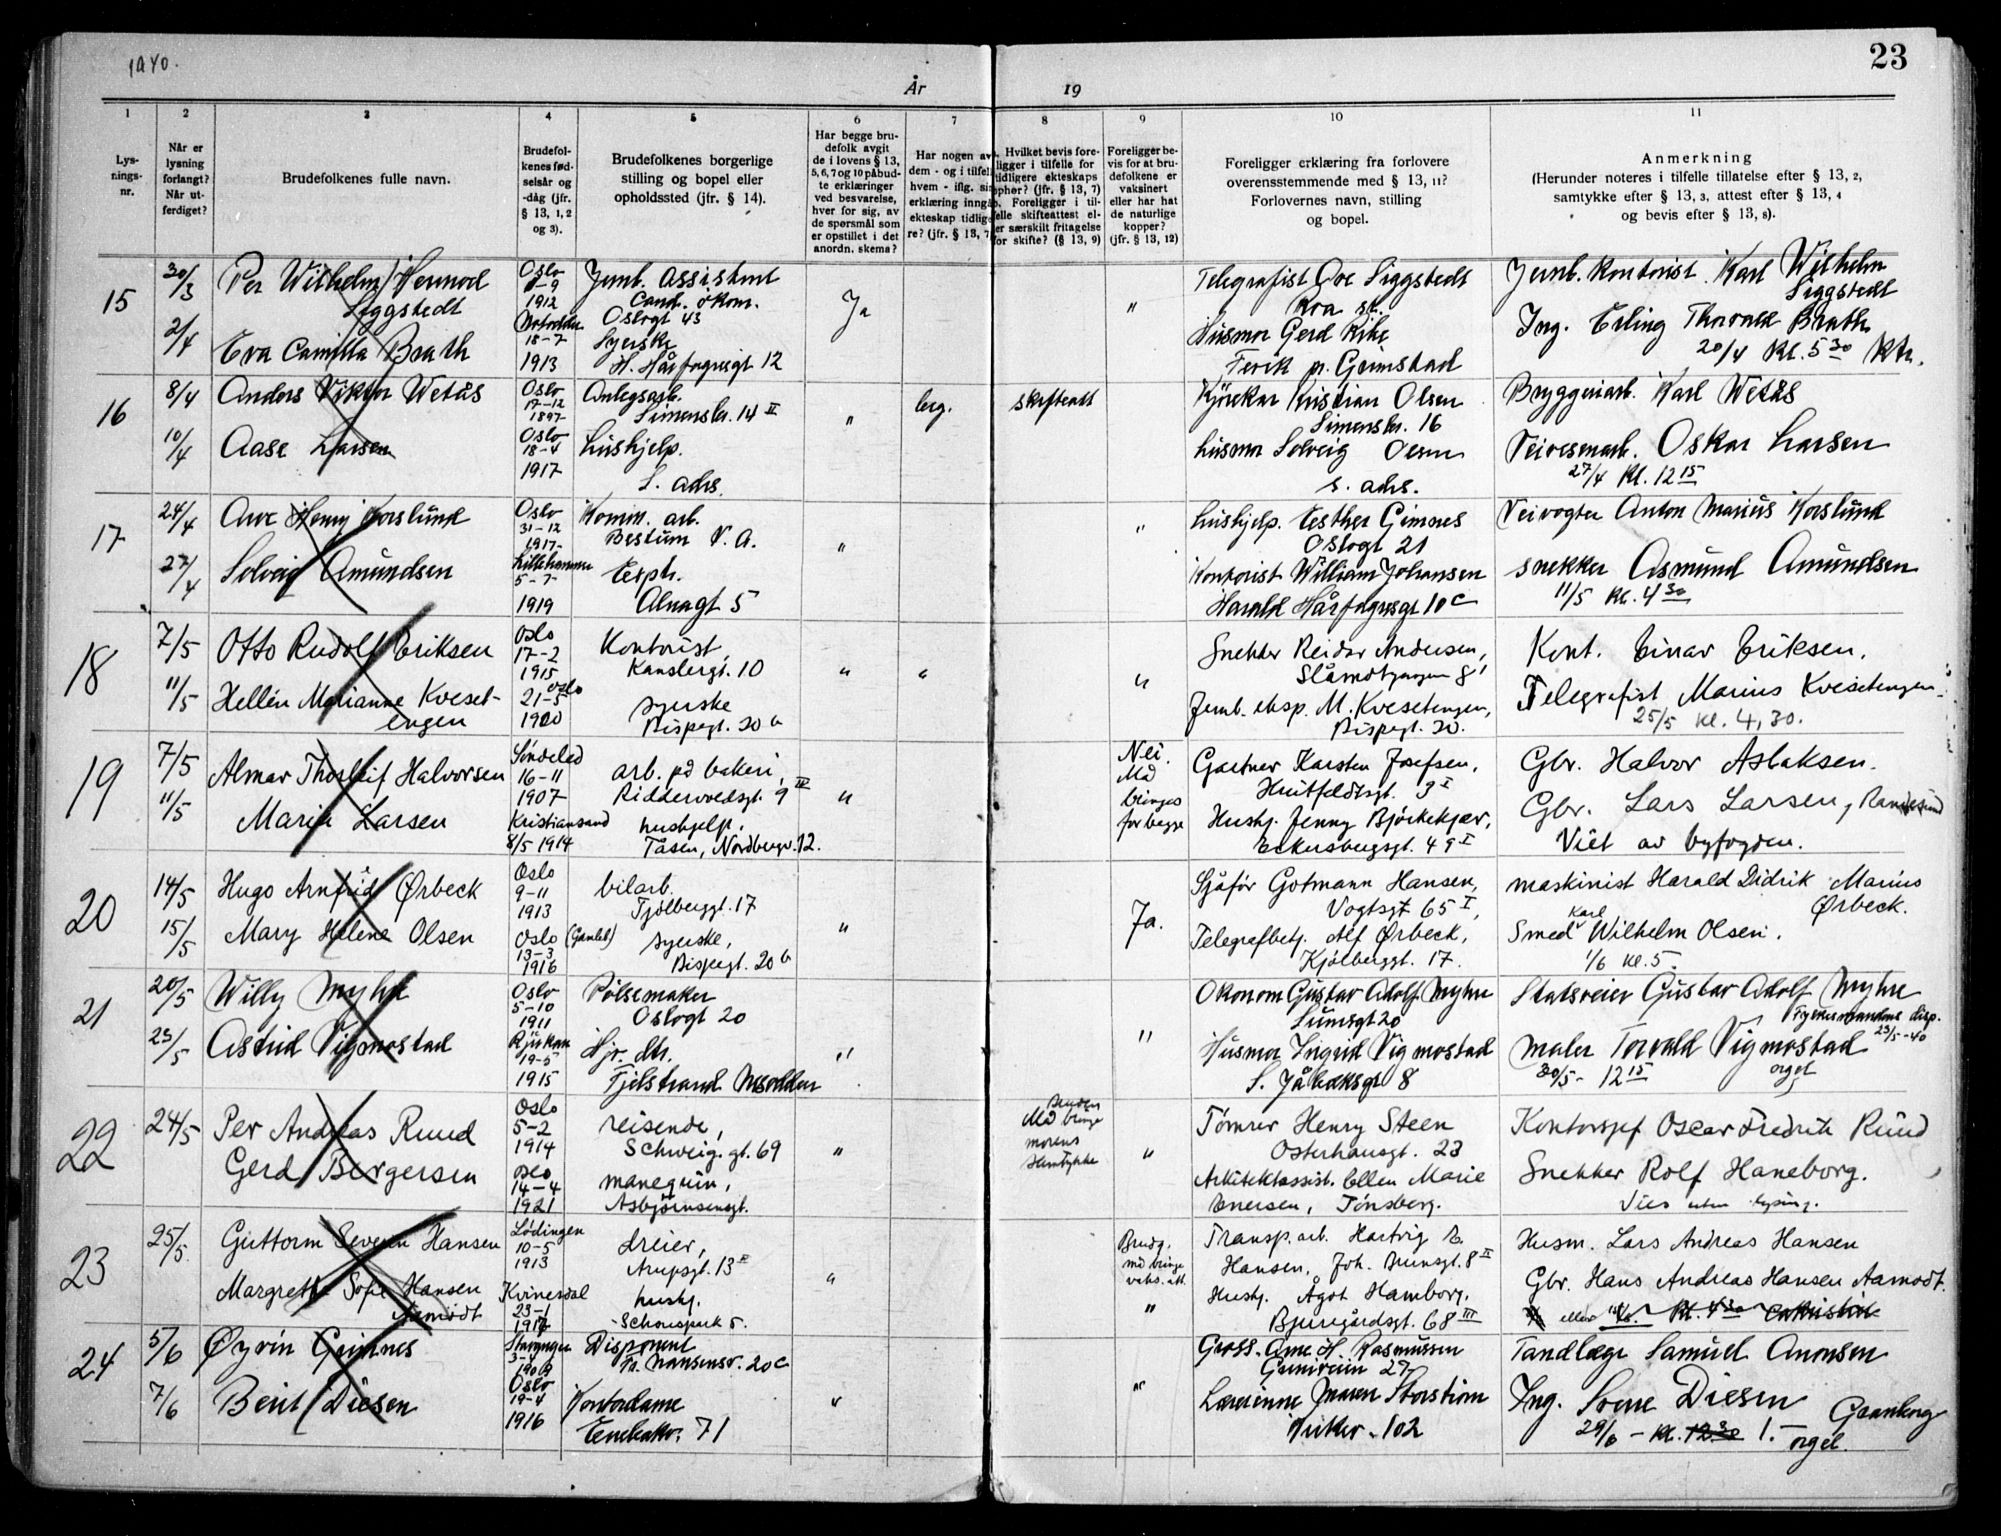 1940.
23
År
19
1
2
3
4
5
6
7
8
9
10
11
Lys-
nings-
nr.
Når er
lysning
forlangt?
Når ut-
ferdiget?
Brudefolkenes fulle navn.
Brudefol-
kenes fød-
selsår og
-dag (jfr.
§ 13, 1, 2
og 3).
Brudefolkenes borgerlige
stilling og bopel eller
opholdssted (jfr. § 14).
Har begge bru-
defolk avgit
de i lovens § 13,
5, 6, 7 og 10 påbud-
te erklæringer
ved besvarelse,
hver for sig, av
de spørsmål som
er opstillet i det
anordn. skema?
Har nogen av
dem - og i tilfelle
hvem - iflg.
erklæring inngått
ekteskap tidlige-
re? (jfr. § 13, 7)
Hvilket bevis fore-
ligger i tilfelle for
tidligere ekteskaps
ophør? (jfr. § 13, 7)
Foreligger i til-
felle skifteattest el-
ler særskilt fritagelse
for skifte? (§ 13, 9)
Foreligger be-
vis for at bru-
defolkene er
vaksinert
eller har hat
de naturlige
kopper?
(jfr. § 13, 12)
Foreligger erklæring fra forlovere
overensstemmende med § 13, 11?
Forlovernes navn, stilling
og bopel.
Anmerkning
(Herunder noteres i tilfelle tillatelse efter § 13, 2,
samtykke efter § 13, 3, attest efter § 13, 4
og bevis efter § 13, 8).
15
30/3
2/4
Per Wilhelm Hermod
Siggstedt
Eva Camilla Brath
Oslo
1912
18-7
1913
Jernb. assistent
Cand. økon.
Oslogt 43
Syerske
H. Hårfagresgt 12
Ja
"
Telegrafist Ove Siggstedt
Husmor Gerd
Jernb. kontorist Karl Wilhelm
Siggstedt
Ing. Erling Thorvald Brath
20/4 Kl. 5 30
16
8/4
10/4
Anders Viktor Wetås
Aase Larsen
Oslo
17-12
1897
Oslo
18-4
1917
Anlegsarb.
Simensbr. 14 II
Hushjelp.
S. adrs.
"
skifteatt
Kristian Olsen
Simensbr. 16
Husmor Solveig Olsen
s. adrs.
Bryggeriarb. Karl Wetås
Veivesenarb. Oskar Larsen
27/4 Kl. 12 15
17
24/4
27/4
Arve Henry Korslund
Solveig Amundsen
Oslo
31-12
1917
Lillehammer
5-7
1919
Komm. arb.
Bestum V. A.
Exp.
Alnagt 5
"
"
Hushjelp. Esther Gimnes
Oslogt 21
Kontorist William Johansen
Harald Hårfagresgt 10 c
Veivogter Anton Marius Korslund
snekker Asmund Amundsen
11/5 kl. 4 30
18
7/5
11/5
Otto Rudolf Eriksen
Hellen Marianne Kveset-
engen
Oslo
17-2
1915
Oslo
21-5
Kontorist,
Kanslergt. 10
syerske
Bispegt. 20 b
"
"
"
Snekker Reidar Andersen,
Jernb. eksp. M. Kvesetengen,
Bispegt. 20.
Kont. Einar Eriksen.
Telegrafist Marius Kvesetengen.
25/5 kl. 4,30.
19
7/5
11/5
Almar Thorleif Halvorsen
Marie Larsen
Søndeled
16-11
1907
Kristiansand
8/5 1914
arb. på bakeri,
Riddervoldsgt. 9 III
hushjelp,
Tåsen, Nordbergv. 12.
"
Nei.
Må
bringes
for begge
Gartner Karsten Josefsen,
Huitfeldtsgt. 3 I
Hushj. Jenny Bjørkekjær,
Eckersbergsgt. 49 I
Gbr. Halvor Aslaksen.
Gbr. Lars Larsen, Randesund
Viet av byfogden.
20
14/5
15/5
Hugo Arnfrid Ørbeck
Mary Helene Olsen
Oslo
9-11
1913
Oslo (Gamleb)
13-3
1916
bilarb.
Kjølberggt. 17
syerske,
Bispegt. 20 b
"
Ja.
Sjåfør Gotmann Hansen,
Vogtsgt 65 I,
Telegrafbetj. Alf Ørbeck,
Kjølberggt. 17.
maskinist Harald Didrik Marius
Ørbeck.
Smed Karl Wilhelm Olsen.
1/6 kl. 5.
21
20/5
23/5
Willy Myhre
Astrid Vigmostad
Oslo
5-10
1911
Rjukan
19-5
1915
Pølsemaker
Oslogt 20
Hj. dtr.
Fjelstrand Nesodden
"
"
Økonom Gustav Adolf Myhre
Husmor Ingrid Vigmostad
Gustav Adolf Myhre
Fylkesmandens disp.
23/5-40
maler Torvald Vigmostad
30/5 - 12 15
orgel
22
24/5
Per Andreas Ruud
Gerd Bergersen
Oslo
5-2
1914
Oslo
14-4
1921
reisende,
Schweig. gt. 69
manequin,
Asbjørnsensgt.
"
Bruden
Må bringe
morens
samtykke
"
Tømrer Henry Steen
Osterhausgt. 23
Arkitektassist. Ellen Marie
Enersen, Tønsberg.
Kontorsjef Oscar Fredrik Ruud
Snekker Rolf Haneborg.
Vies uten lysning.
23
25/5
Guttorm Severin Hansen
Margrethe Sofie Hansen
Aamodt
Lødingen
10-5
1913
Kvinesdal
23-1
dreier,
Arupsgt. 13
hushj.
Schouspark 5.
"
Brudg.
må bringe
vaks. att.
"
Transp. arb. Hartvig E.
Hansen, Joh. Brunsgt. 8 II
Hushj. Ågot Hamborg,
Bjerregårdsgt. 68 III
Husm. Lars Andreas Hansen
Gbr. Hans Andreas Hansen Aamodt.
24
5/6
7/6
Øyvin Grimnes
Berit Diesen
Stavanger
Oslo
19-4
1916
Disponent
Fr. Nansensv. 20 c
Kontordame
Enebakkv. 71
"
"
Gross. Arne H. Rasmussen
27
Lærerinne Maren Storstrøm
102
Tandlæge Samuel
Ing. Diesen
29/6 - Kl. 12 30 1.-
orgel.